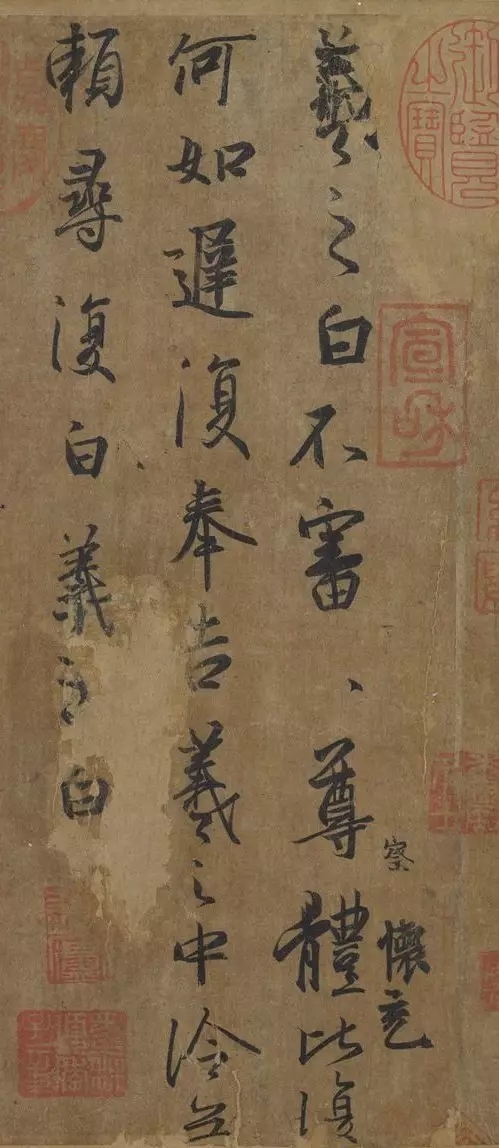 御覽之寶
宣和
察
懷充
羲之白不審、尊體比復
何如遲復奉告羲之中冷無
賴尋復白羲之白